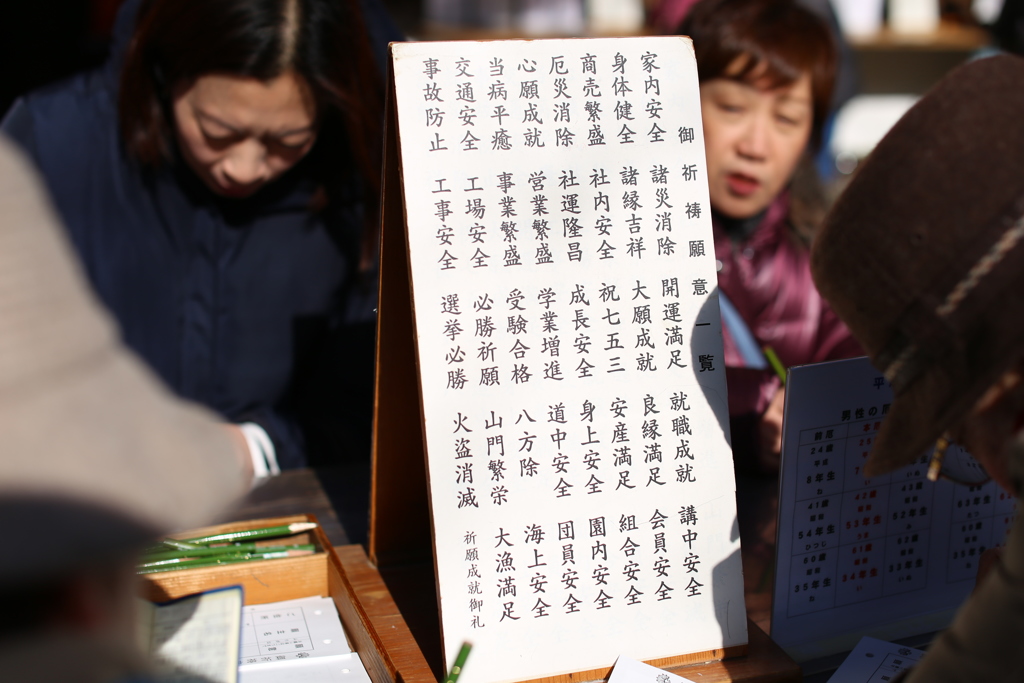 御祈祷願意一覧
家内安全
身体健全
商売繁盛
厄災消除
心願成就
当病平癒
交通安全
事故防止
諸災消除
諸縁吉祥
社内安全
社運隆昌
営業繁盛
事業繁盛
工場安全
工事安全
開運満足
大願成就
祝七五三
成長安全
学業増進
受験合格
必勝祈願
選挙必勝
就職成就
良縁満足
安産満足
身上安全
道中安全
八方除
山門繁栄
火盗消滅
講中安全
会員安全
組合安全
園内安全
団員安全
海上安全
大漁満足
祈願成就御礼